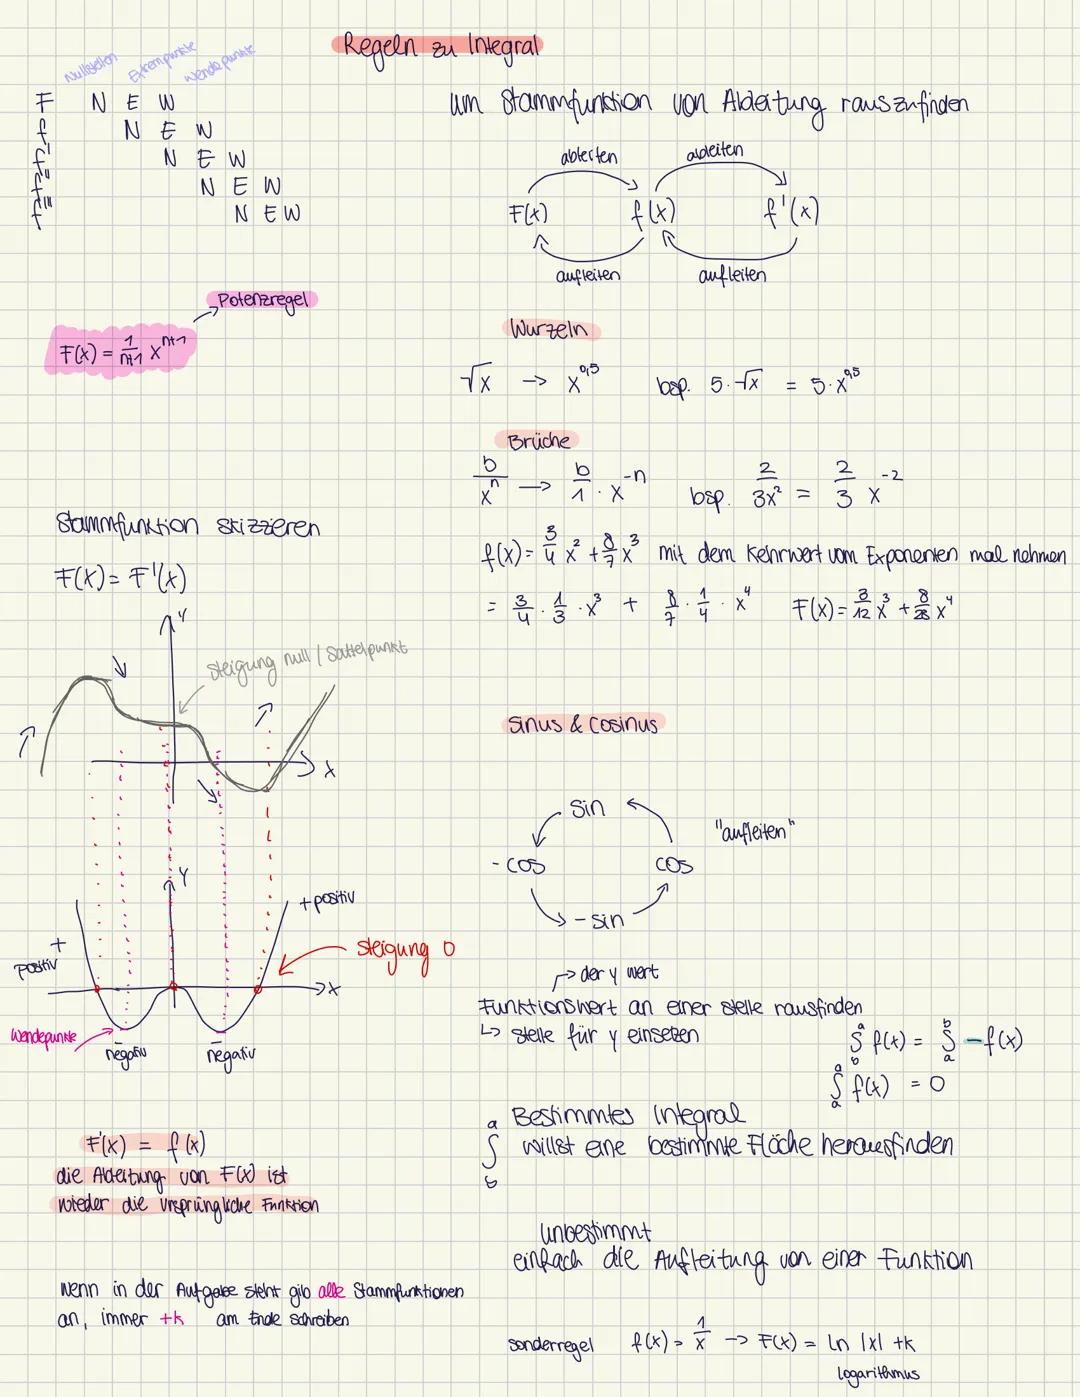 Regeln zu Integral
Nullstellen Extrempunkte Wendepunkte
F N E W
f N E W
f' N E W
f'' N E W
f''' N E W
um Stammfunktion von Ableitung rauszufinden
ableiten ableiten
F(x) f(x) f'(x)
aufleiten aufleiten
Potenzregel
F(x) = 1/n+1 x^n+1
Wurzeln
√x -> x^0,5 bsp. 5·√x = 5·x^0,5
Brüche
b/x^n -> b/1 · x^-n bsp. 2/3x² = 2/3 x^-2
f(x) = 3/4 x² + 8/7 x³ mit dem Kehrwert vom Exponenten mal nehmen
= 3/4 · 1/3 · x³ + 8/7 · 1/4 · x⁴ F(x) = 3/12 x³ + 8/28 x⁴
Stammfunktion skizzieren
F(x) = F'(x)
y
steigung null / Sattelpunkt
x
y
+ positiv
+
positiv
steigung 0
x
Wendepunkte
-
negativ
-
negativ
sinus & cosinus
sin
"aufleiten"
- cos cos
- sin
-> der y wert
Funktionswert an einer stelle rausfinden
↳ stelle für y einsetzen
∫ a b f(x) = ∫ b a -f(x)
∫ a a f(x) = 0
F'(x) = f(x)
die Ableitung von F(x) ist
wieder die ursprüngliche Funktion
Bestimmtes Integral
∫ a b willst eine bestimmte Fläche herausfinden
unbestimmt
einfach die Aufleitung von einer Funktion
wenn in der Aufgabe steht gib alle Stammfunktionen
an, immer +k am Ende schreiben
sonderregel f(x) = 1/x -> F(x) = ln |x| +k
logarithmus